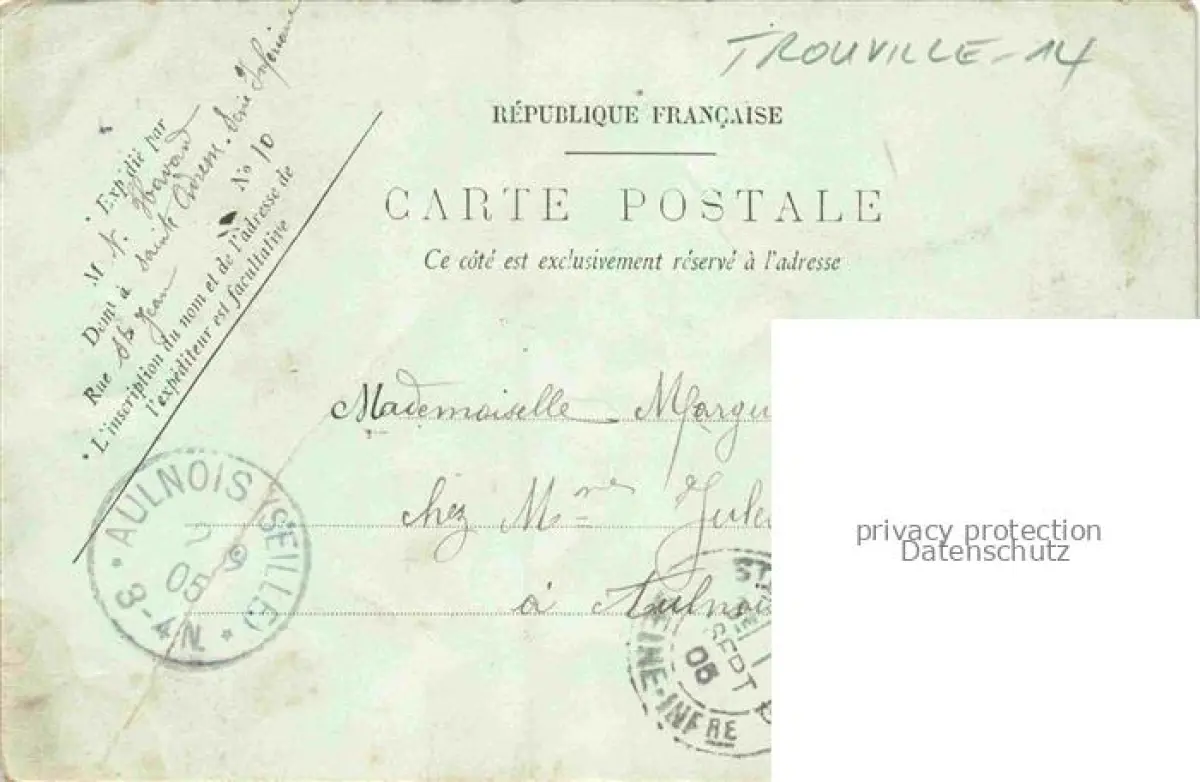 TROUVILLE-14
RÉPUBLIQUE FRANÇAISE
CARTE POSTALE
Ce côté est exclusivement réservé à l'adresse
Expédié par
M Havard
Demt à Sainte Seine Inférieure
Rue St Jean No 10
L'inscription du nom et de l'adresse de
l'expéditeur est facultative
Mademoiselle Margu
chez M Jules
à Aulnois
AULNOIS (SEILLE)
7 9
05
3-4 N.
ST
SEPT
05
SEINE-INFRE
privacy protection
Datenschutz